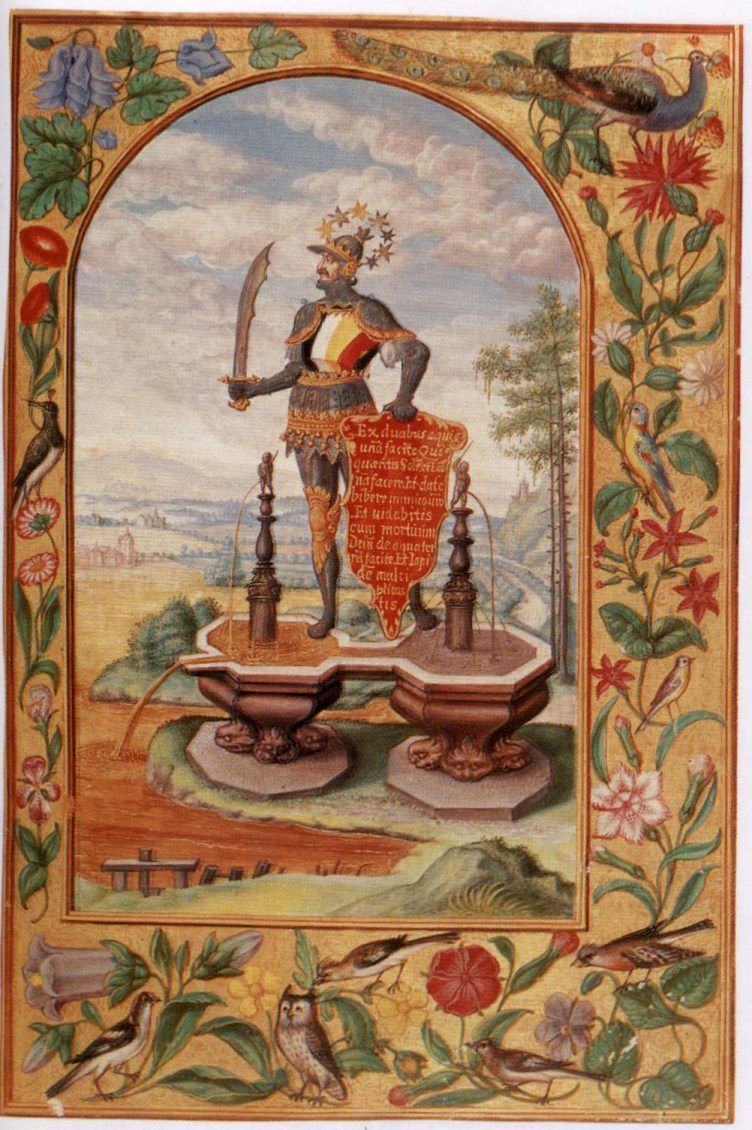 Ex duabus aquis
unã facite Qui
quæritis Sole et Lu
na facere. Et date
bibere inimico uio
Et uidebitis
eum mortuum
Dein de aqua ter
rã facite. Et lapi
dẽ multi
plicas
tis